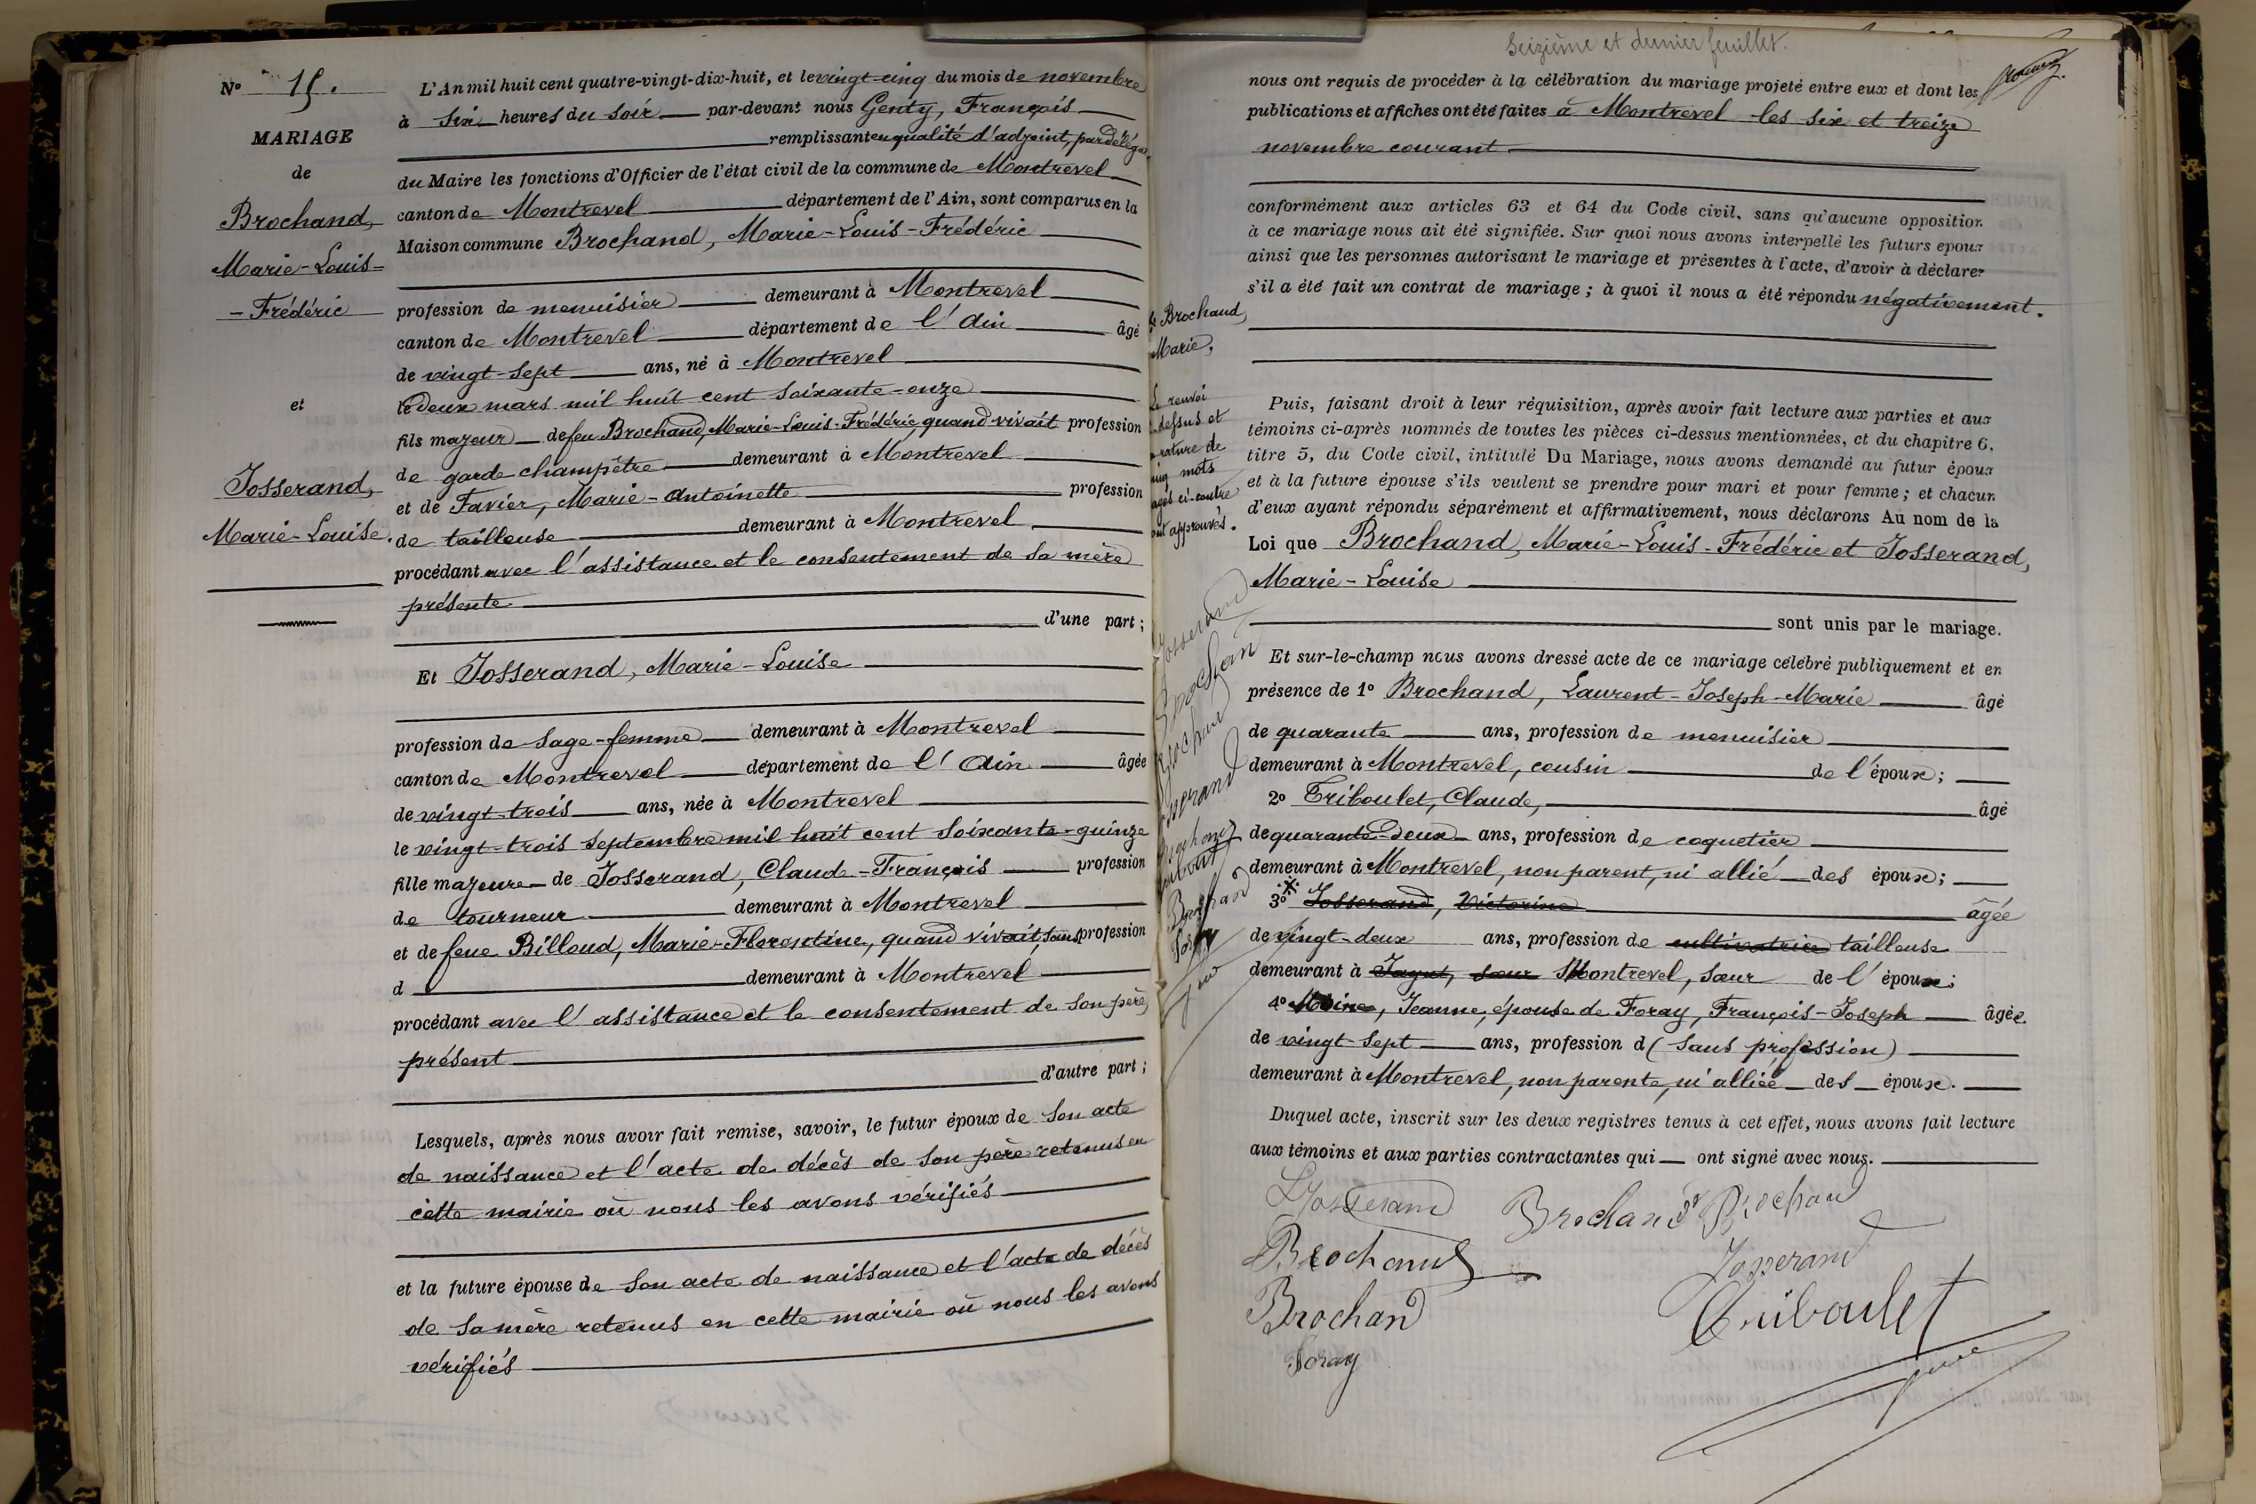 No 15.
MARIAGE
de
Brochand,
Marie-Louis-
-Frédéric
et
Josserand,
Marie-Louise.
L'An mil huit cent quatre-vingt-dix-huit, et le vingt-cinq du mois de novembre
à six heures du soir par-devant nous Genty, François
remplissant en qualité d'adjoint, par délég
du Maire les fonctions d'Officier de l'état civil de la commune de Montrevel
canton de Montrevel département de l'Ain, sont comparus en la
Maison commune Brochand, Marie-Louis-Frédéric
profession de menuisier demeurant à Montrevel
canton de Montrevel département de l'Ain âgé
de vingt-sept ans, né à Montrevel
le deux mars mil huit cent soixante-onze
fils majeur de feu Brochand, Marie-Louis-Frédéric, quand vivait profession
de garde champêtre demeurant à Montrevel
et de Favier, Marie-Antoinette profession
de tailleuse demeurant à Montrevel
procédant avec l'assistance et le consentement de sa mère
présente
d'une part;
Et Josserand, Marie-Louise
profession de sage-femme demeurant à Montrevel
canton de Montrevel département de l'Ain âgée
de vingt-trois ans, née à Montrevel
le vingt-trois septembre mil huit cent soixante-quinze
fille majeure de Josserand, Claude-François profession
de tourneur demeurant à Montrevel
et de feue Billoud, Marie-Florentine, quand vivait, sans profession
d demeurant à Montrevel
procédant avec l'assistance et le consentement de son père,
présent
d'autre part;
Lesquels, après nous avoir fait remise, savoir, le futur époux de son acte
de naissance et l'acte de décès de son père retenus en
cette mairie où nous les avons vérifiés
et la future épouse de son acte de naissance et l'acte de décès
de sa mère retenus en cette mairie où nous les avons
vérifiés
Seizième et dernier feuillet.
nous ont requis de procéder à la célébration du mariage projeté entre eux et dont les
publications et affiches ont été faites à Montrevel les six et treize
novembre courant
conformément aux articles 63 et 64 du Code civil, sans qu'aucune opposition
à ce mariage nous ait été signifiée. Sur quoi nous avons interpellé les futurs epoux
ainsi que les personnes autorisant le mariage et présentes à l'acte, d'avoir à déclarer
s'il a été fait un contrat de mariage; à quoi il nous a été répondu négativement.
Brochand,
Marie,
Le renvoi
dessus et
rature de
cinq mots
ci-contre
approuvés.
Josserand
Brochan
Brochand
Josserand
Brochand
Triboulet
Brochand
Foray
Puis, faisant droit à leur réquisition, après avoir fait lecture aux parties et aux
témoins ci-après nommés de toutes les pièces ci-dessus mentionnées, et du chapitre 6,
titre 5, du Code civil, intitulé Du Mariage, nous avons demandé au futur époux
et à la future épouse s'ils veulent se prendre pour mari et pour femme; et chacun
d'eux ayant répondu séparément et affirmativement, nous déclarons Au nom de la
Loi que Brochand, Marie-Louis-Frédéric et Josserand,
Marie-Louise
sont unis par le mariage.
Et sur-le-champ nous avons dressé acte de ce mariage célébré publiquement et en
présence de 1º Brochand, Laurent-Joseph-Marie âgé
de quarante ans, profession de menuisier
demeurant à Montrevel, cousin de l'époux;
2º Triboulet, Claude, âgé
de quarante-deux ans, profession de coquetier
demeurant à Montrevel, non parent, ni allié des époux;
3º Josserand, Victorine âgée
de vingt-deux ans, profession de cultivatrice tailleuse
demeurant à Jayat, sœur Montrevel, sœur de l'époux;
4º Moine, Jeanne, épouse de Foray, François-Joseph âgée
de vingt-sept ans, profession d (sans profession)
demeurant à Montrevel, non parente, ni alliée des époux.
Duquel acte, inscrit sur les deux registres tenus à cet effet, nous avons fait lecture
aux témoins et aux parties contractantes qui ont signé avec nous.
L Josserand Brochand Brochand
Brochand Josserand
Brochand Triboulet
Foray